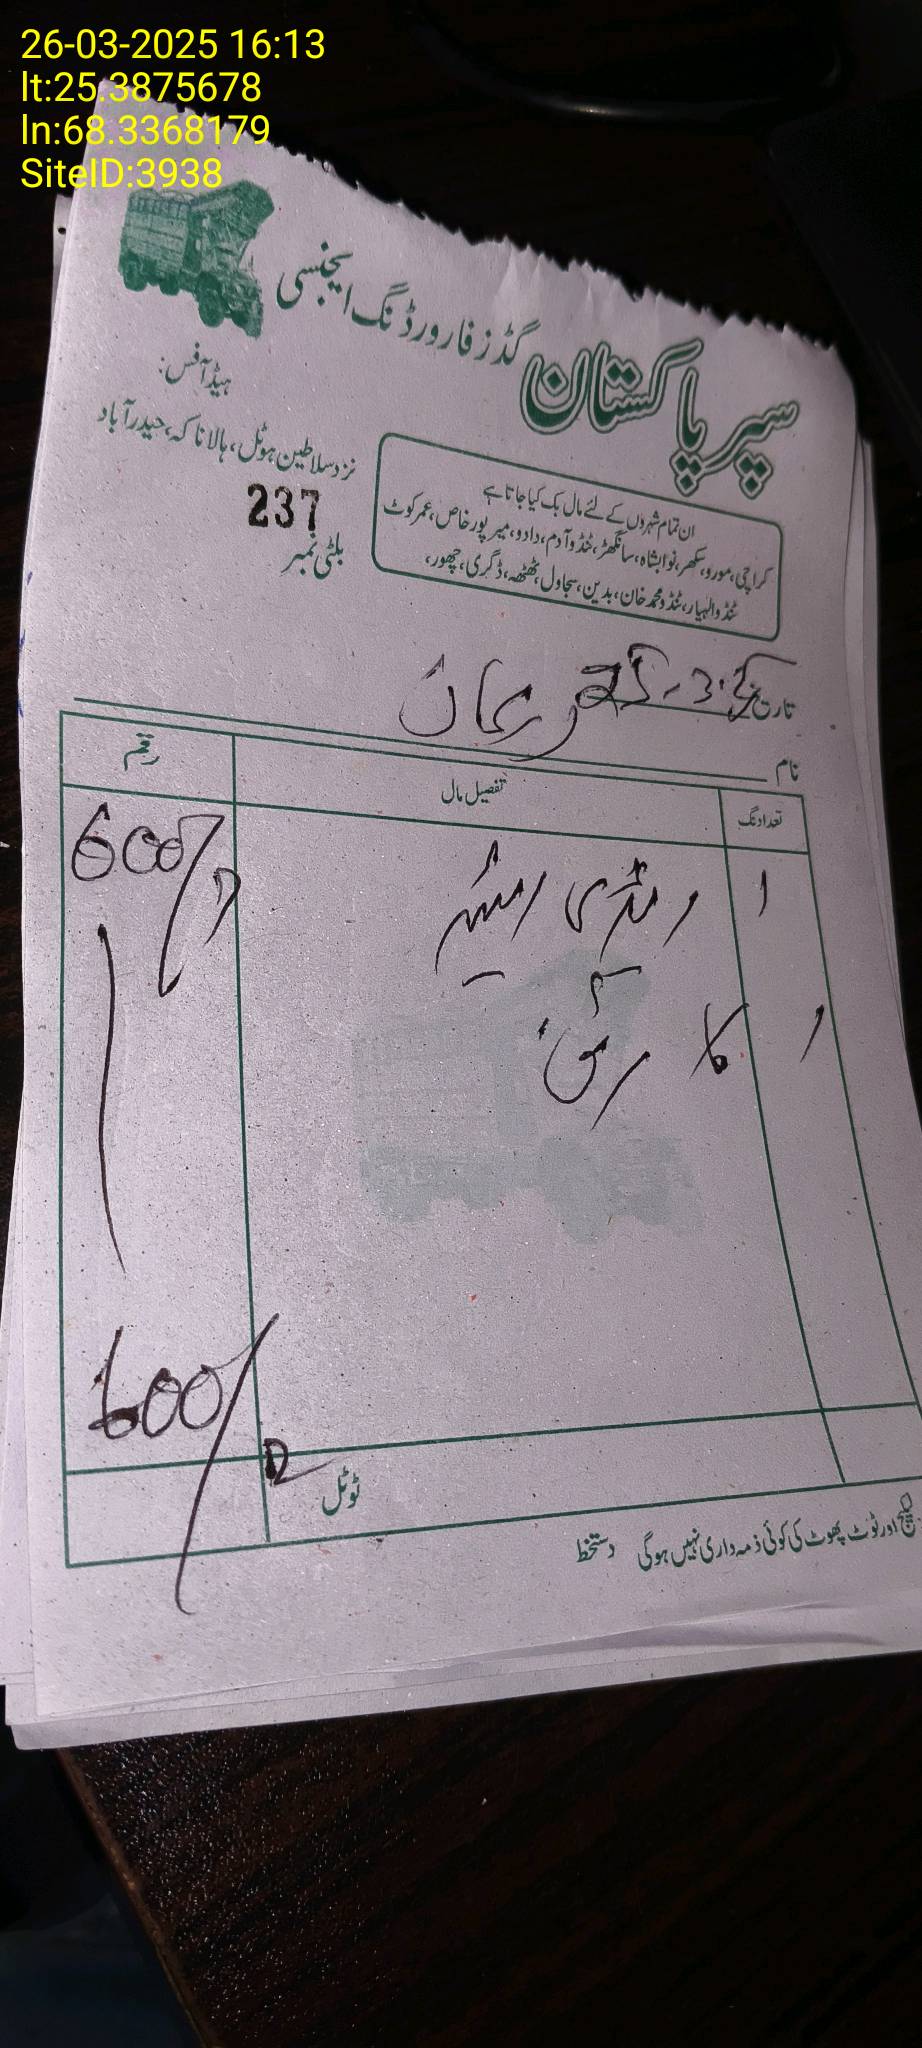 26-03-2025 16:13
lt:25.3875678
ln:68.3368179
SiteID:3938
سپر پاکستان گڈز فارورڈنگ ایجنسی
ہیڈ آفس:
نزد سلاطین ہوٹل، ہالا ناکہ، حیدرآباد
ان تمام شہروں کے لئے مال بک کیا جاتا ہے
کراچی، مورو، سکھر، نوابشاہ، سانگھڑ، ٹنڈوآدم، دادو، میرپورخاص، عمرکوٹ
ٹنڈوالہیار، ٹنڈومحمدخان، بدین، سجاول، ٹھٹھہ، ڈگری، جھور،
237
بلٹی نمبر
تاریخ 25-3-25
نام
تعداد نگ تفصیل مال رقم
1 600/
1 کارٹن
600/
ٹوٹل
لیکج اور ٹوٹ پھوٹ کی کوئی ذمہ داری نہیں ہوگی دستخط